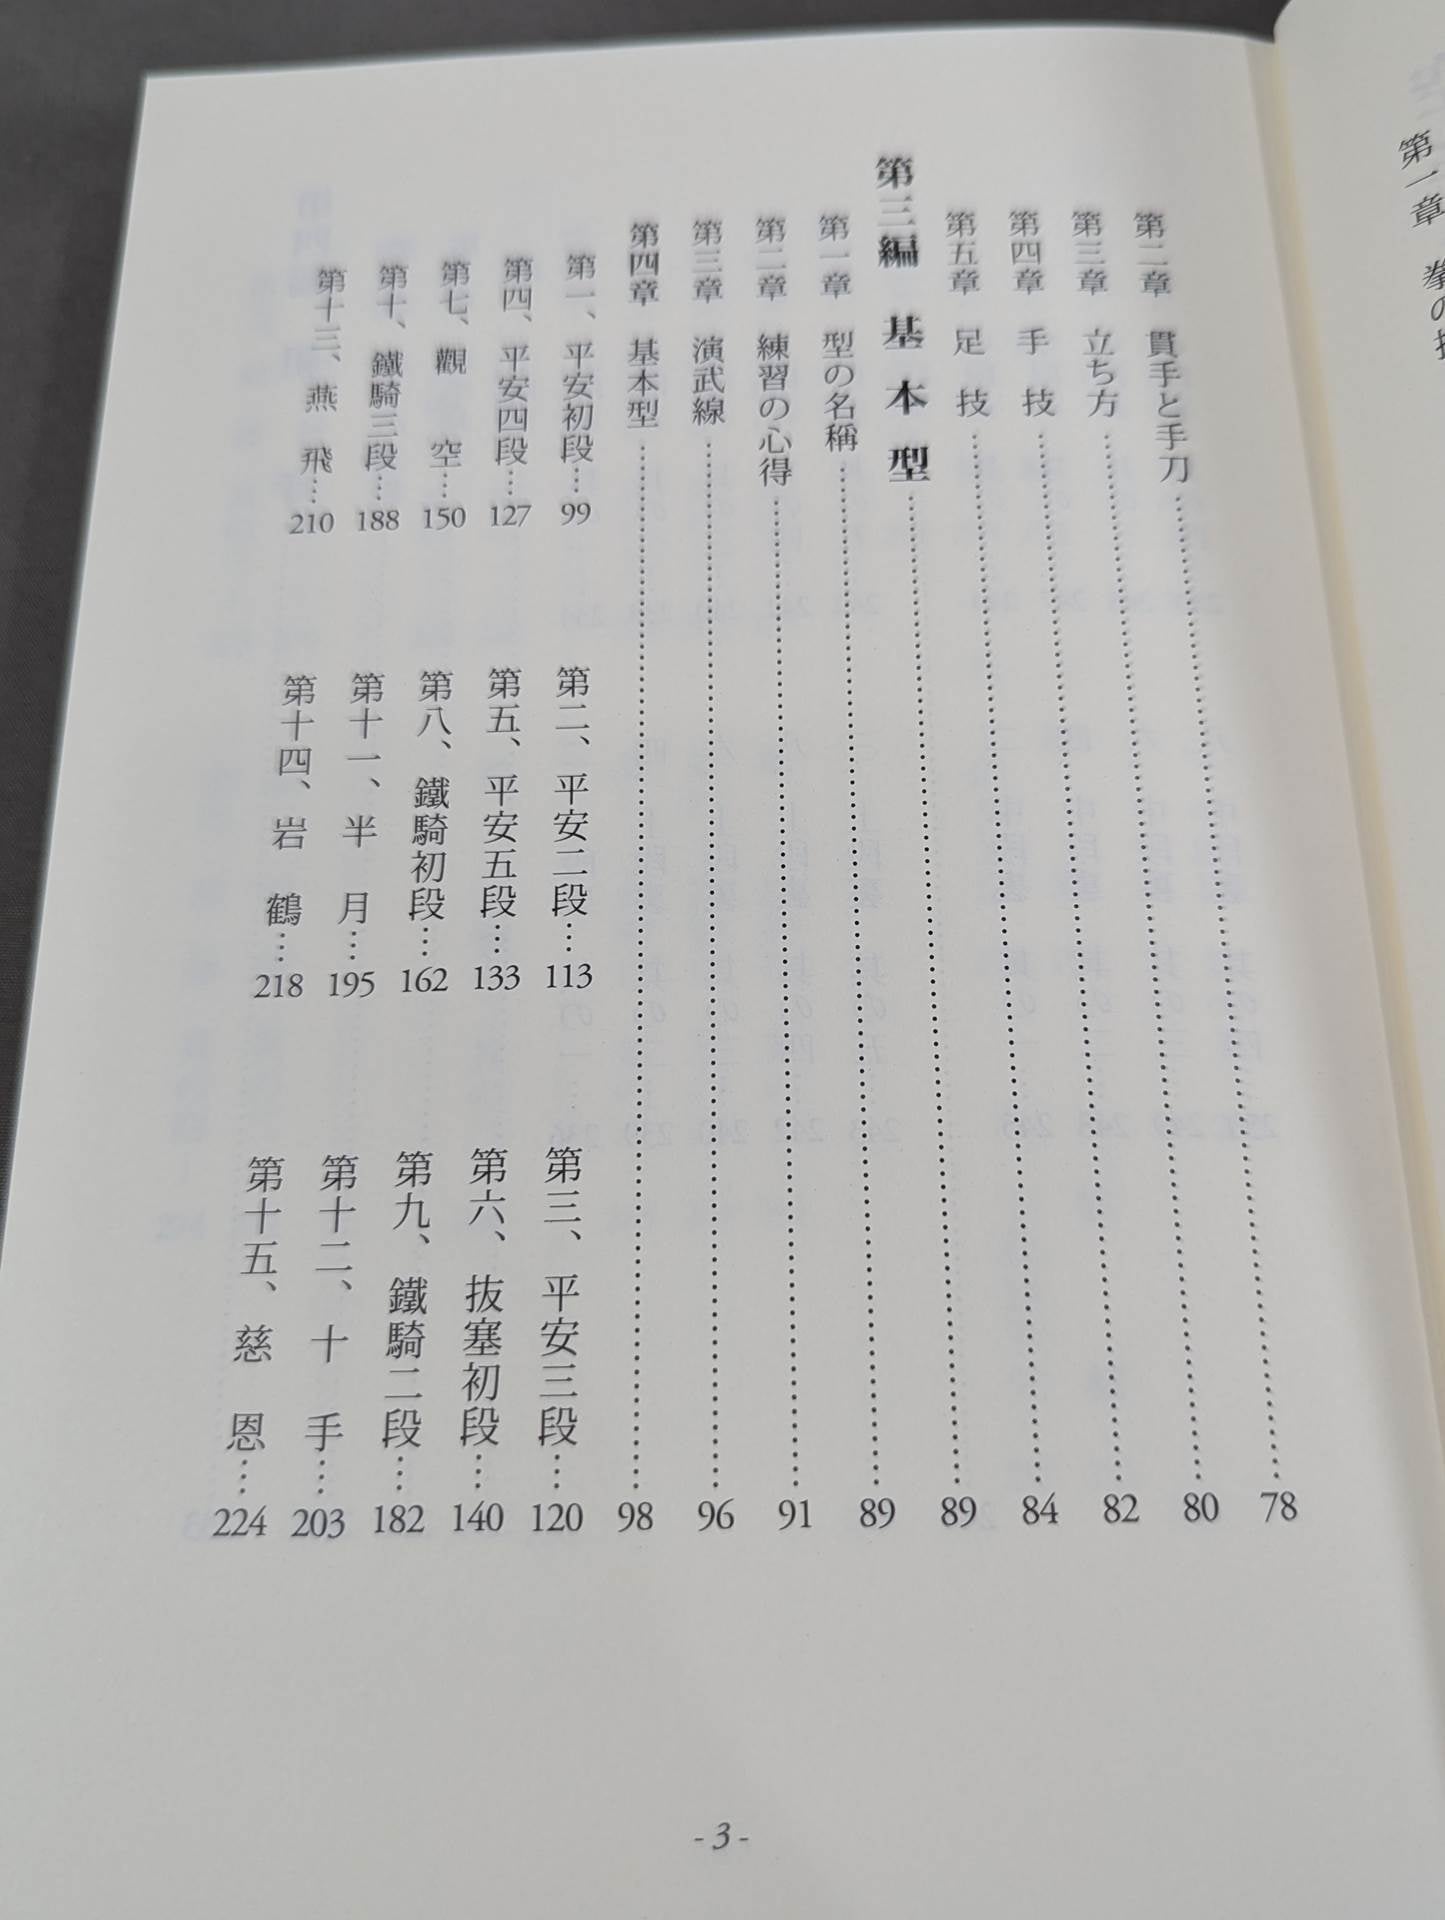 第一章　拳の
第二章　貫手と手刀……78
第三章　立ち方……80
第四章　手　技……82
第五章　足　技……84
第三編　基　本　型……89
第一章　型の名稱……89
第二章　練習の心得……91
第三章　演武線……96
第四章　基本型……98
第一、平安初段…99
第二、平安二段…113
第三、平安三段…120
第四、平安四段…127
第五、平安五段…133
第六、抜塞初段…140
第七、觀　空…150
第八、鐵騎初段…162
第九、鐵騎二段…182
第十、鐵騎三段…188
第十一、半　月…195
第十二、十　手…203
第十三、燕　飛…210
第十四、岩　鶴…218
第十五、慈　恩…224
- 3 -